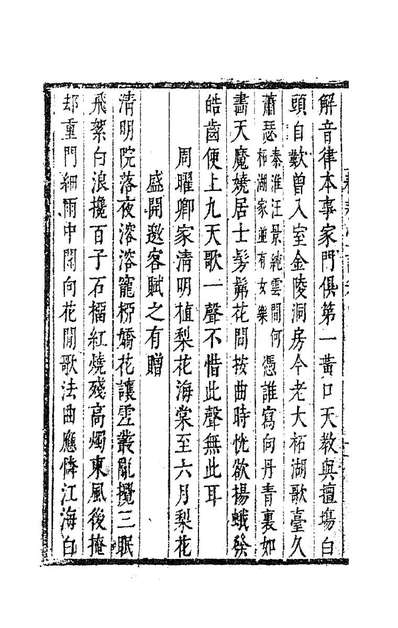 解音律本事家門俱第一黃口天教與擅塲白
頭自歎曽入室金陵洞房今老大柘湖歌臺久
蕭瑟秦淮汪景純雲間何柘湖家並有女樂憑誰寫向丹青裏如
畵天魔嬈居士髣髴花間按曲時恍欲揚蛾發
皓齒便上九天歌一聲不惜此聲無此耳
周曜卿家清明植梨花海棠至六月梨花
盛開邀客賦之有贈
清明院落夜溶溶寵栁嬌花讓雪叢亂攪三眠
飛絮白浪攙百子石榴紅燒殘高燭東風後掩
却重門細雨中閒向花間歌法曲應憐江海白